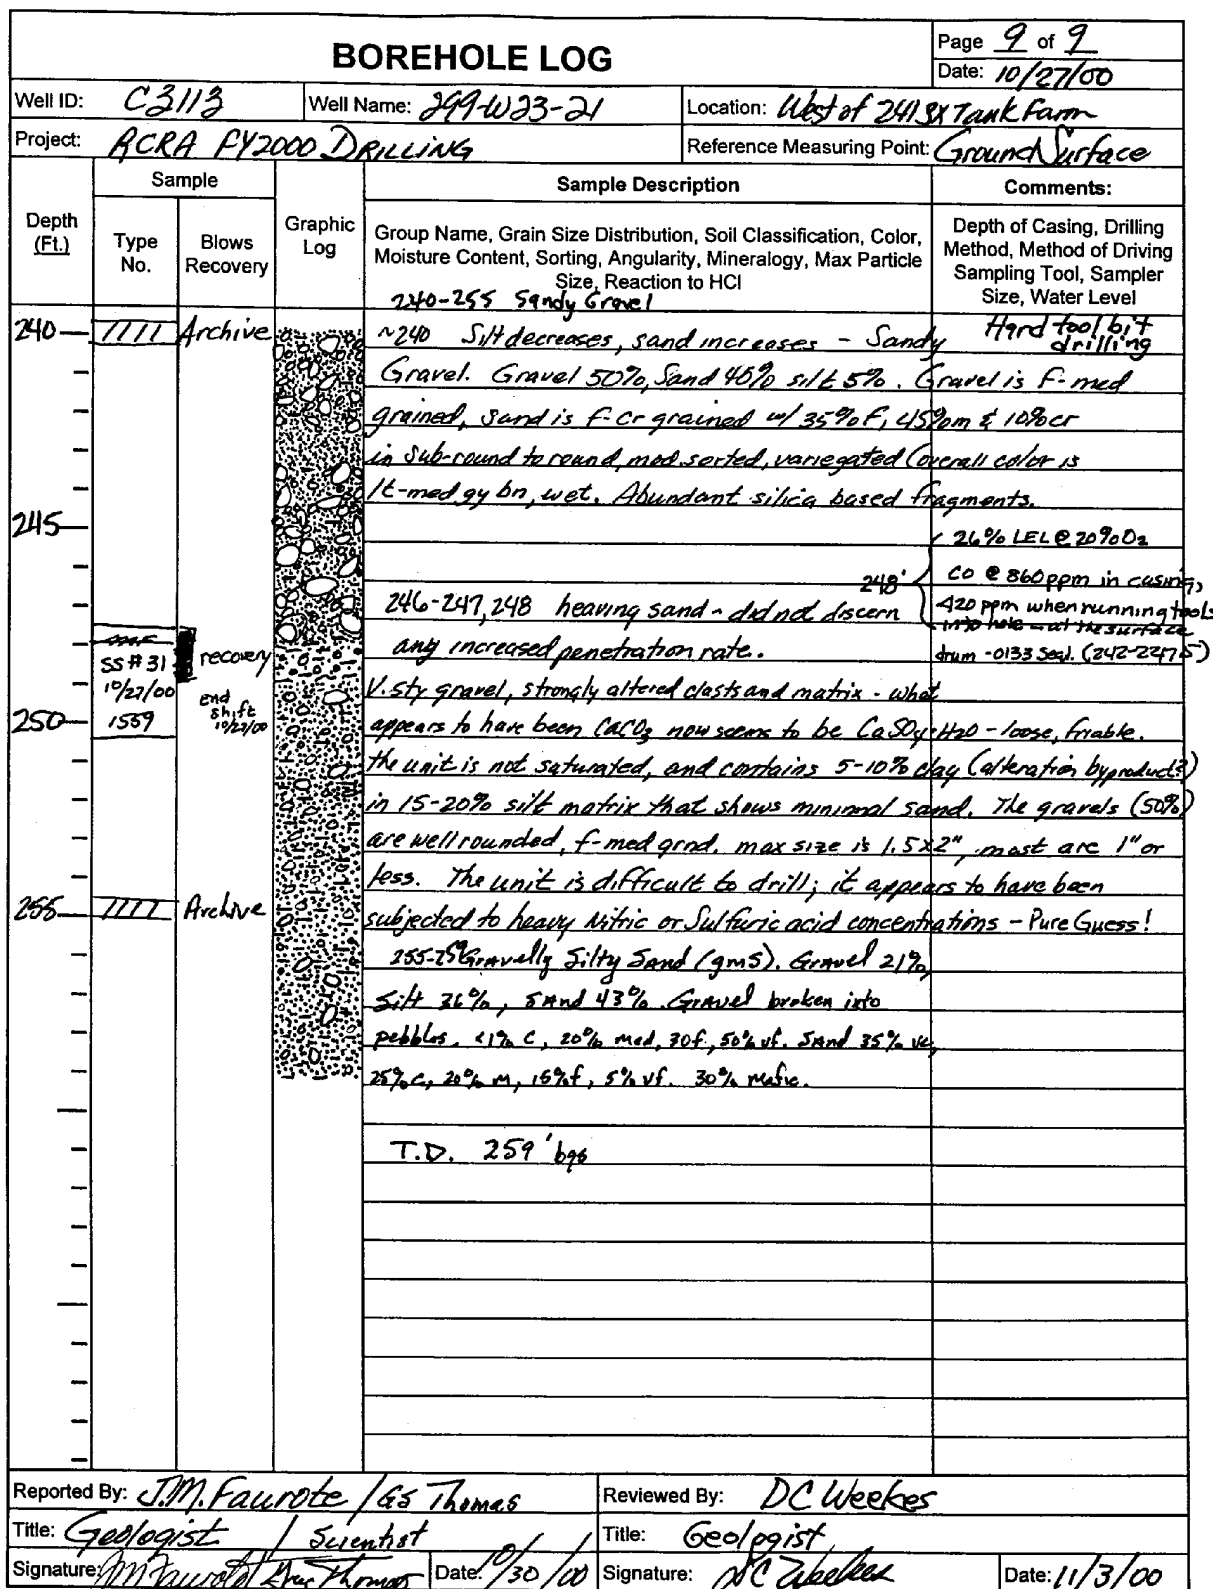 BOREHOLE LOG
Page 9 of 9
Date: 10/27/00
Well ID: C3113
Well Name: 299-W23-21
Location: West of 241 SX Tank Farm
Project: RCRA FY2000 DRILLING
Reference Measuring Point: Ground Surface
Depth (Ft.)
Sample
Type No.
Blows Recovery
Graphic Log
Sample Description
Group Name, Grain Size Distribution, Soil Classification, Color,
Moisture Content, Sorting, Angularity, Mineralogy, Max Particle
Size, Reaction to HCl
Comments:
Depth of Casing, Drilling
Method, Method of Driving
Sampling Tool, Sampler
Size, Water Level
240-255 Sandy Gravel
240 Archive
~240 Silt decreases, sand increases - Sandy
Hard tool bit
drilling
Gravel. Gravel 50%, Sand 45% silt 5%. Gravel is f-med
grained, sand is f-cr grained w/ 35% f, 45% m & 10% cr
in sub-round to round, mod sorted, variegated (overall color is
lt-med gy bn, wet. Abundant silica based fragments.
245
26% LEL @ 20% O2
248'
CO @ 860 ppm in casing,
246-247, 248 heaving sand - did not discern
420 ppm when running tools
into hole - at the surface
any increased penetration rate.
drum -0133 Seal. (242-2247.5)
SS #31
10/27/00
1559
recovery
end
shift
10/27/00
V. sty gravel, strongly altered clasts and matrix - what
250
appears to have been CaCO3 now seems to be CaSO4·H2O - loose, friable.
the unit is not saturated, and contains 5-10% clay (alteration byproduct?)
in 15-20% silt matrix that shows minimal sand. The gravels (50%)
are well rounded, f-med grnd. max size is 1.5x2", most are 1" or
less. The unit is difficult to drill; it appears to have been
255 Archive
subjected to heavy Nitric or Sulfuric acid concentrations - Pure Guess!
255-259 Gravelly Silty Sand (gmS). Gravel 21%,
Silt 36%, Sand 43%. Gravel broken into
pebbles. <1% C, 20% med, 30f, 50% vf. Sand 35% vc,
25% c, 20% m, 15% f, 5% vf. 30% mafic.
T.D. 259' bgs
Reported By: J.M. Faurote / GS Thomas
Reviewed By: DC Weekes
Title: Geologist / Scientist
Title: Geologist
Signature: JM Faurote / Thomas
Date: 10/30/00
Signature: DC Weekes
Date: 11/3/00